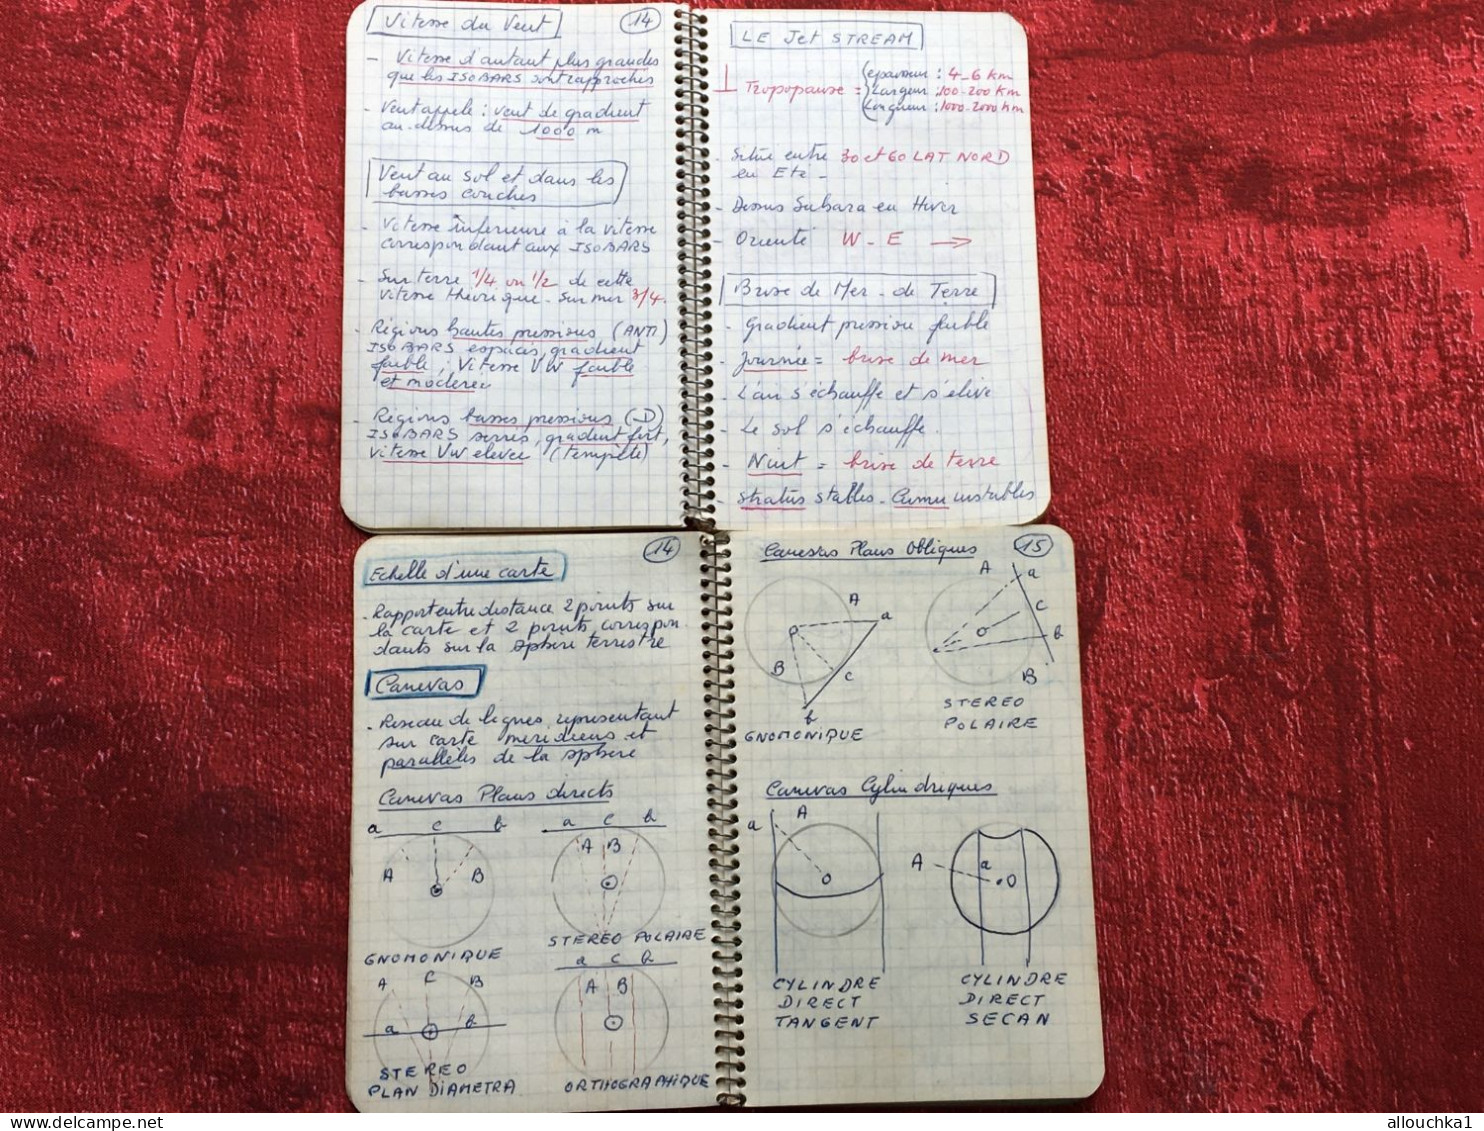 Vitesse du Vent
14
- Vitesse d'autant plus grandes
que les ISOBARS sont rapprochés
- Vent appelé : vent de gradient
au-dessus de 1000 m
Vent au sol et dans les
basses couches
- Vitesse inférieure à la vitesse
correspondant aux ISOBARS
- Sur terre 1/4 ou 1/2 de cette
vitesse théorique - Sur mer 3/4.
- Régions hautes pressions (ANTI)
ISOBARS espacés, gradient
faible ; Vitesse VW faible
et modérée
- Régions basses pressions (D)
ISOBARS serrés, gradient fort,
vitesse VW elevee (tempête)
LE Jet STREAM
⊥ Tropopause = epaisseur : 4-6 km
Largeur : 100-200 km
Longueur : 1000-2000 km
- Située entre 30 et 60 LAT NORD
en Ete -
- Dessus Sahara en Hiver
- Orienté W - E →
Brise de Mer - de Terre
- Gradient pression faible
- Journée = brise de mer
- L'air s'échauffe et s'élève
- Le sol s'échauffe.
- Nuit = brise de terre
- Stratus stables - Cumu instables
Echelle d'une carte
14
- Rapport entre distance 2 points sur
la carte et 2 points correspon
dants sur la sphère terrestre
Canevas
- Reseau de lignes representant
sur carte meridiens et
parallèles de la sphère
Canevas Plans directs
a c b
A B
GNOMONIQUE
a c b
A B
STEREO POLAIRE
A C B
a b
STEREO
PLAN DIAMETRA
a c b
A B
ORTHOGRAPHIQUE
Canevas Plans Obliques
15
A
a
O
B
c
b
GNOMONIQUE
A a
C
O
b
B
STEREO
POLAIRE
Canevas Cylindriques
a A
O
CYLINDRE
DIRECT
TANGENT
A a
O
CYLINDRE
DIRECT
SECAN
www.delcampe.net
allouchka1